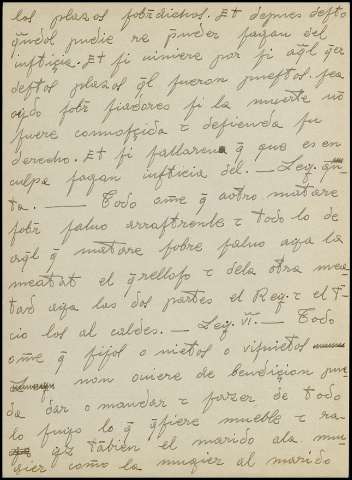 los plazos sobredichos. Et depues desto
quel pudie re prender fagan del
iusticia. Et si uiniere por si aql qer
destos plazos ql fueron puestos. sea
oydo sobr fiadores si la muerte no
fuere connosçida τ defienda su
derecho. Et si fallaren q̄ que es en
culpa fagan iusticia del. — Ley. qn
ta. — Todo ome q̄ aotro matare
sobr saluo arrastrenle τ todo lo de
aql q̄ matare sobre saluo aya la
meatat el qrelloso τ dela otra mea
tad aya las dos partes el Rey. τ el t
cio los al caldes. — Ley. VI. — Todo
ome q̄ fijos o nietos o visnietos
non ouiere de bendiçion pue
da dar o mandar τ fazer de todo
lo suyo lo q̄ qsiere mueble τ ra
yz tābien el marido ala mu
gier como la mugier al marido